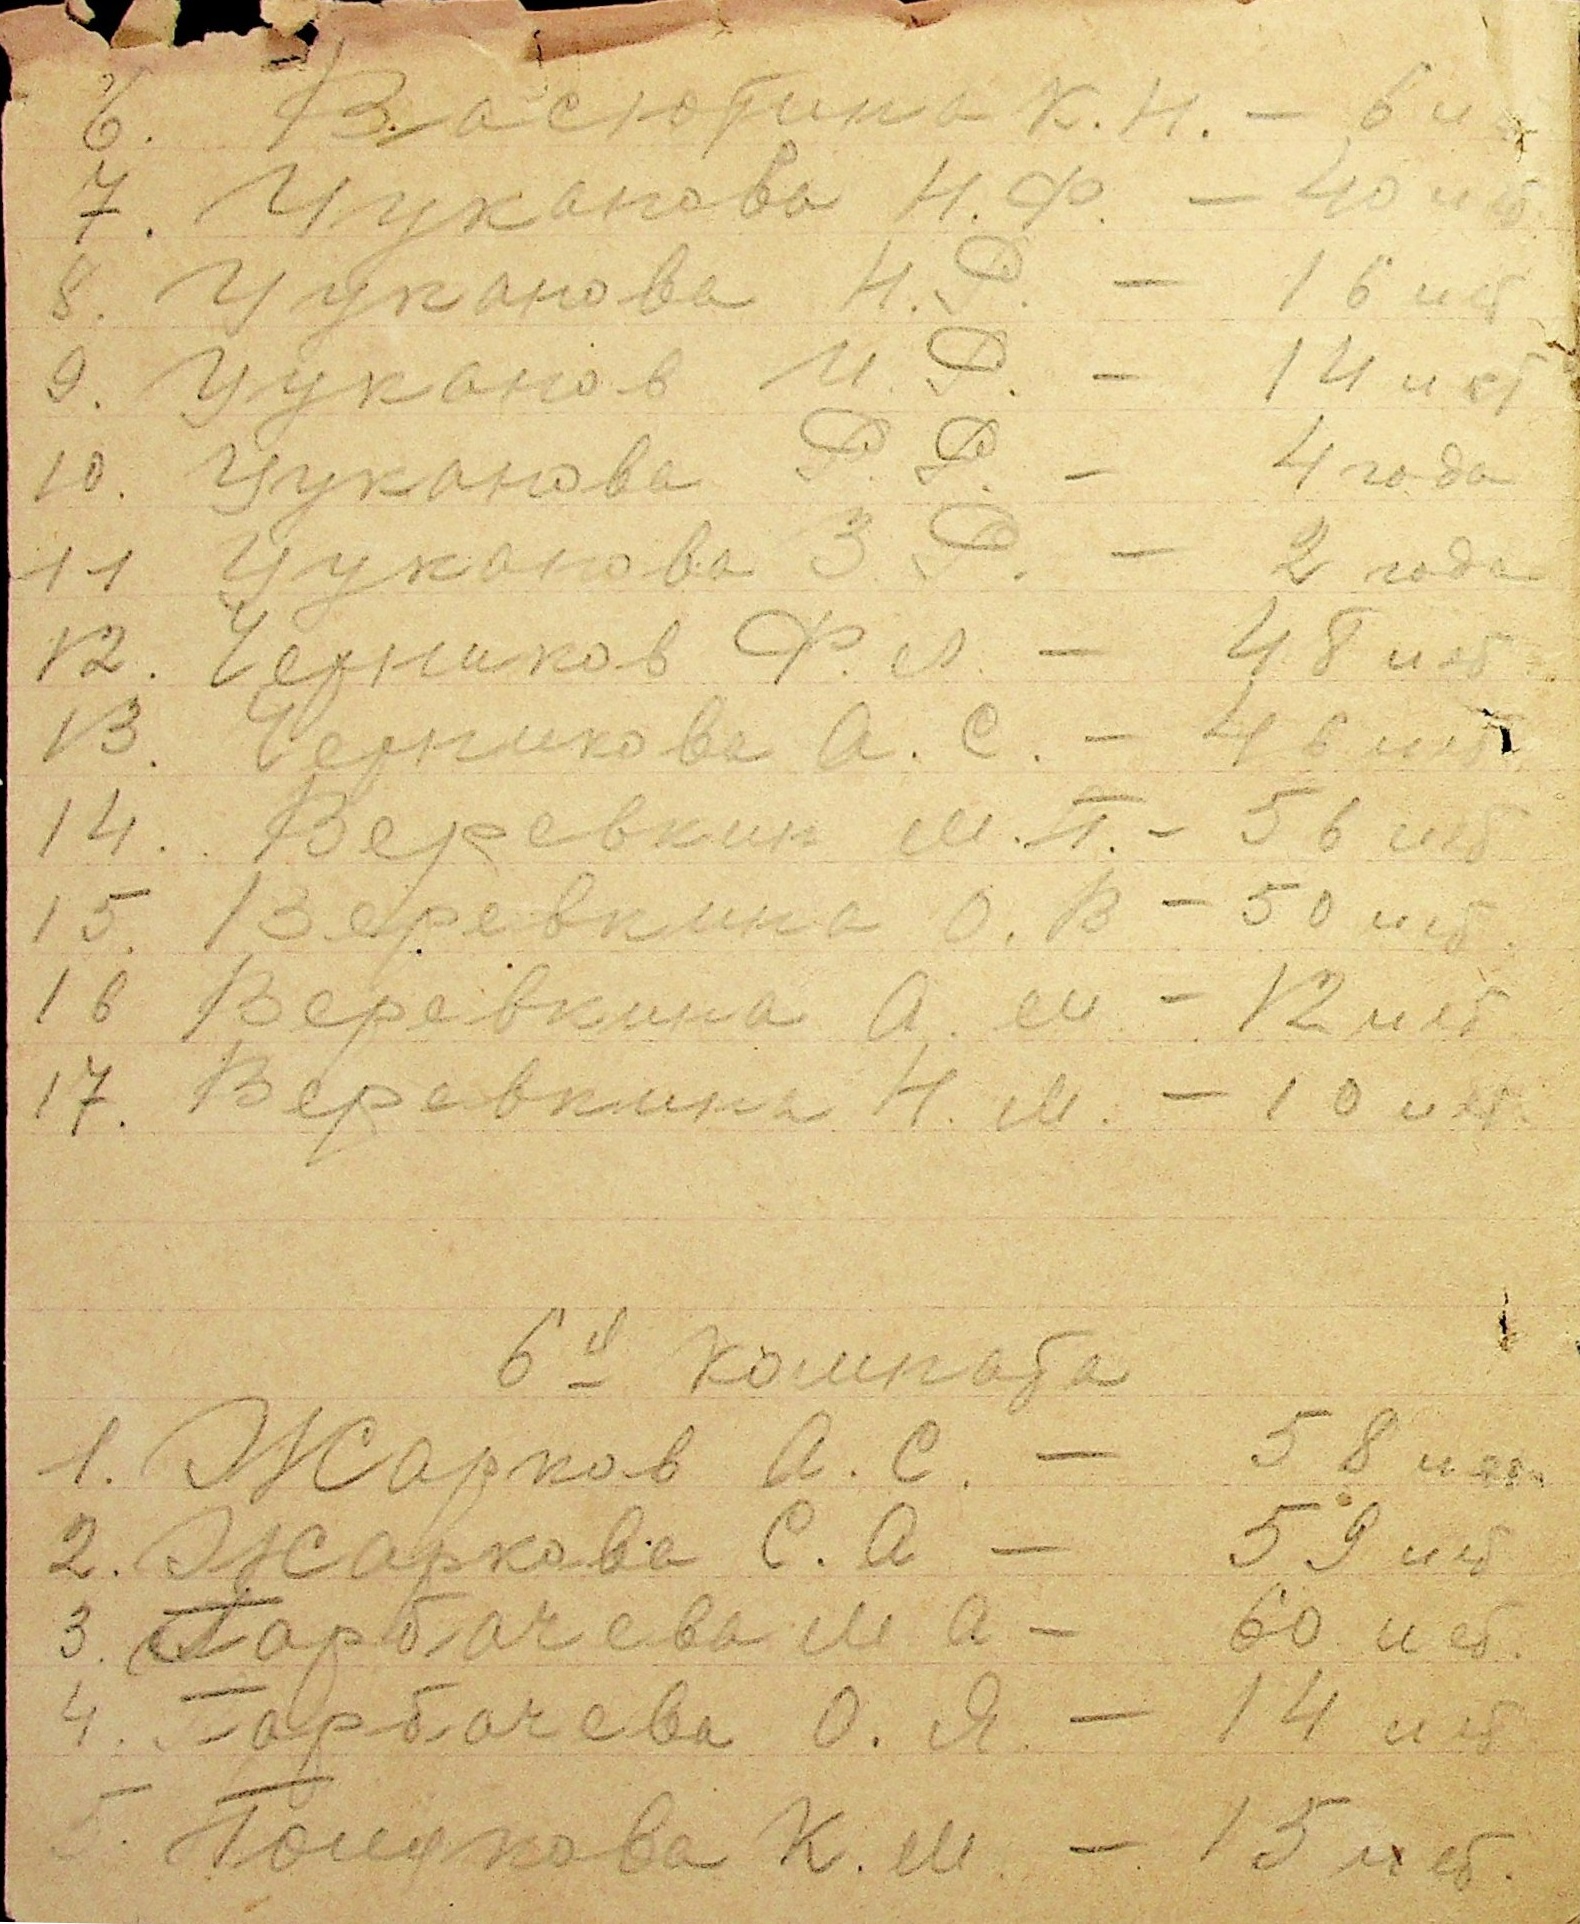 6. Васютина К. Н. – 6 лет
7. Чуканова Н. Ф. – 40 лет
8. Чуканова Н. Ф. – 16 лет
9. Чуканов И. Ф. – 14 лет
10. Чуканова Ф. Ф. – 4 года
11 Чуканова З Ф. – 2 года
12. Черников Ф. Л. – 48 лет
13. Черникова А. С. – 46 лет
14. Веревкин М. П. – 56 лет
15. Веревкина О. В – 50 лет.
16 Веревкина А. М – 12 лет
17. Веревкина Н. М. – 10 лет.
6й комната
1. Жарков А. С. – 58 лет
2. Жаркова С. А – 59 лет
3. Гарбачева М А – 60 лет.
4. Гарбачева О. Я. – 14 лет
5. К. М. – 15 лет.